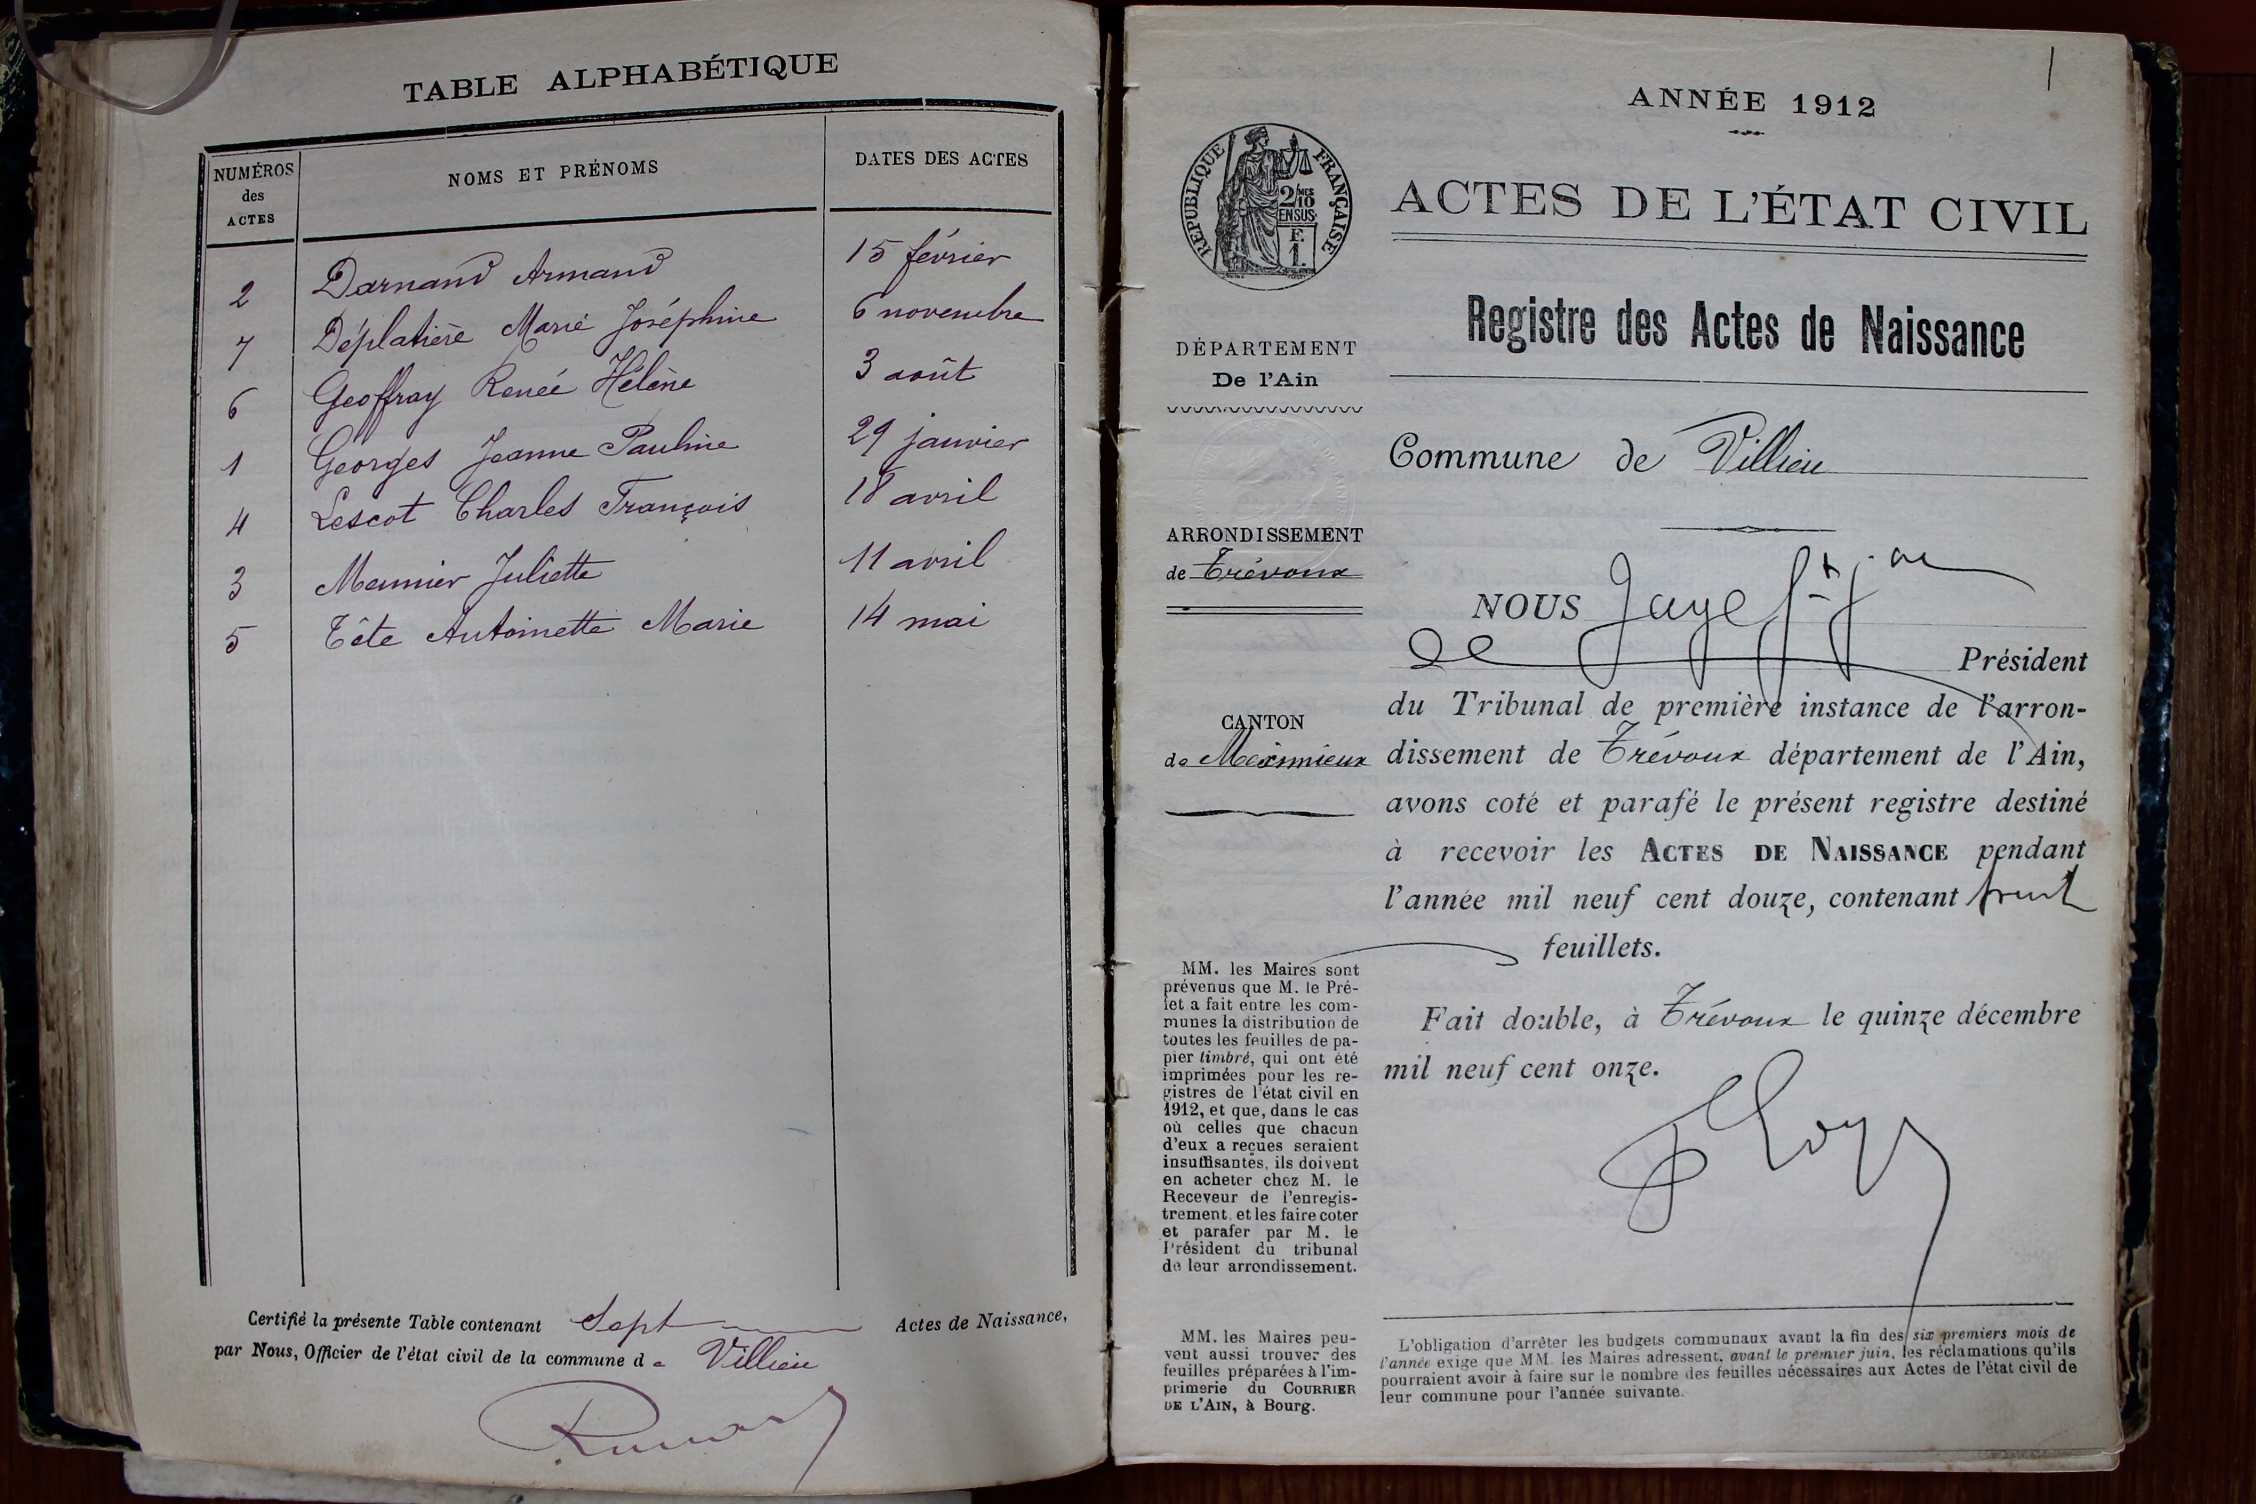 TABLE ALPHABÉTIQUE
NUMÉROS
des
ACTES
NOMS ET PRÉNOMS
DATES DES ACTES
2 Darnand Armand 15 février
7 Déplatière Marie Joséphine 6 novembre
6 Geoffray Renée Hélène 3 août
1 Georges Jeanne Pauline 29 janvier
4 Lescot Charles François 18 avril
3 Meunier Juliette 11 avril
5 Tête Antoinette Marie 14 mai
Certifié la présente Table contenant Sept Actes de Naissance,
par Nous, Officier de l'état civil de la commune de Villieu
1
ANNÉE 1912
RÉPUBLIQUE FRANÇAISE
2/10 MES
EN SUS
F.
1.
ACTES DE L'ÉTAT CIVIL
Registre des Actes de Naissance
DÉPARTEMENT
De l'Ain
Commune de Villieu
ARRONDISSEMENT
de Trévoux
CANTON
de Meximieux
NOUS
Président
du Tribunal de première instance de l'arron-
dissement de Trévoux département de l'Ain,
avons coté et parafé le présent registre destiné
à recevoir les ACTES DE NAISSANCE pendant
l'année mil neuf cent douze, contenant
feuillets.
Fait double, à Trévoux le quinze décembre
mil neuf cent onze.
MM. les Maires sont
prévenus que M. le Pré-
fet a fait entre les com-
munes la distribution de
toutes les feuilles de pa-
pier timbré, qui ont été
imprimées pour les re-
gistres de l'état civil en
1912, et que, dans le cas
où celles que chacun
d'eux a reçues seraient
insuffisantes, ils doivent
en acheter chez M. le
Receveur de l'enregis-
trement, et les faire coter
et parafer par M. le
Président du tribunal
de leur arrondissement.
MM. les Maires peu-
vent aussi trouver des
feuilles préparées à l'im-
primerie du COURRIER
DE L'AIN, à Bourg.
L'obligation d'arrêter les budgets communaux avant la fin des six premiers mois de
l'année exige que MM. les Maires adressent, avant le premier juin, les réclamations qu'ils
pourraient avoir à faire sur le nombre des feuilles nécessaires aux Actes de l'état civil de
leur commune pour l'année suivante.